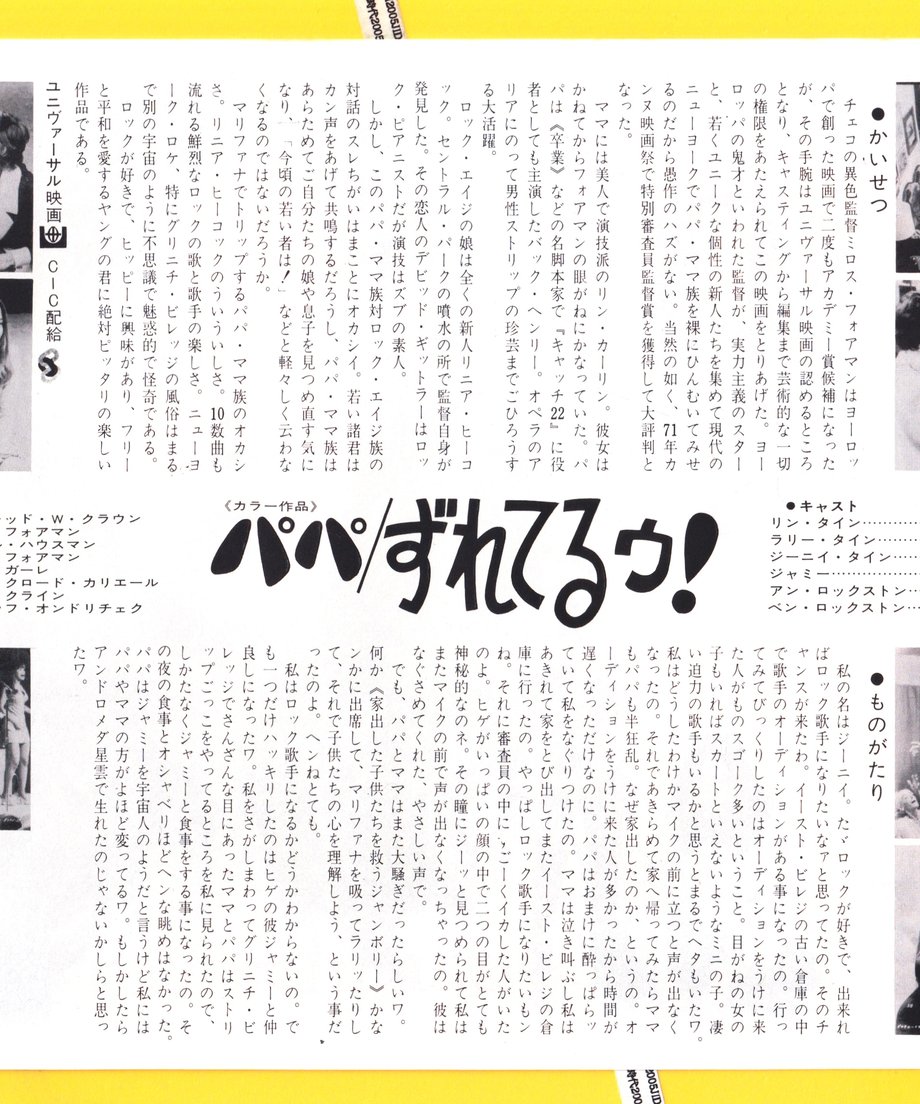 ●かいせつ
チェコの異色監督ミロス・フォアマンはヨーロッ
パで創った映画で二度もアカデミー賞候補になった
が、その手腕はユニヴァーサル映画の認めるところ
となり、キャスティングから編集まで芸術的な一切
の権限をあたえられてこの映画をとりあげた。ヨー
ロッパの鬼才といわれた監督が、実力主義のスター
と、若くユニークな個性の新人たちを集めて現代の
ニューヨークでパパ・ママ族を裸にひんむいてみせ
るのだから愚作のハズがない。当然の如く、71年カ
ンヌ映画祭で特別審査員監督賞を獲得して大評判と
なった。
ママには美人で演技派のリン・カーリン。彼女は
かねてからフォアマンの眼がねにかなっていた。パ
パは《卒業》などの名脚本家で『キャッチ22』に役
者としても主演したバック・ヘンリー。オペラのア
リアにのって男性ストリップの珍芸までごひろうす
る大活躍。
ロック・エイジの娘は全くの新人リニア・ヒーコ
ック。セントラル・パークの噴水の所で監督自身が
発見した。その恋人のデビッド・ギットラーはロッ
ク・ピアニストだが演技はズブの素人。
しかし、このパパ・ママ族対ロック・エイジ族の
対話のスレちがいはまことにオカシイ。若い諸君は
カン声をあげて共鳴するだろうし、パパ・ママ族は
あらためてご自分たちの娘や息子を見つめ直す気に
なり、「今頃の若い者は!」などと軽々しく云わな
くなるのではないだろうか。
マリファナでトリップするパパ・ママ族のオカシ
さ。リニア・ヒーコックのういういしさ。10数曲も
流れる鮮烈なロックの歌と歌手の楽しさ。ニューヨ
ーク・ロケ、特にグリニチ・ビレッジの風俗はまる
で別の宇宙のように不思議で魅惑的で怪奇である。
ロックが好きで、ヒッピーに興味があり、フリー
と平和を愛するヤングの君に絶対ピッタリの楽しい
作品である。
ユニヴァーサル映画 CIC配給
●キャスト
リン・タイン
ラリー・タイン
ジーニイ・タイン
ジャミー
アン・ロックストン
ベン・ロックストン
《カラー作品》
パパ/ずれてるゥ!
ッド・W・クラウン
フォアマン
ン・ハウスマン
フォアマン
ガーレ
クロード・カリエール
クライン
フ・オンドリチェク
●ものがたり
私の名はジーニイ。たゞロックが好きで、出来れ
ばロック歌手になりたいなァと思ってたの。そのチ
ャンスが来たわ。イースト・ビレジの古い倉庫の中
で歌手のオーディションがある事になったの。行っ
てみてびっくりしたのはオーディションをうけに来
た人がものスゴーク多いということ。目がねの女の
子もいればスカートといえないようなミニの子。凄
い迫力の歌手もいるかと思うとまるでヘタもいたワ。
私はどうしたわけかマイクの前に立つと声が出なく
なったの。それであきらめて家へ帰ってみたらママ
もパパも半狂乱。なぜ家出したのか、というの。オ
ーディションをうけに来た人が多かったから時間が
遅くなっただけなのに。パパはおまけに酔っぱらッ
ていて私をなぐりつけたの。ママは泣き叫ぶし私は
あきれて家をとび出してまたイースト・ビレジの倉
庫に行ったの。やっぱしロック歌手になりたいもン
ね。それに審査員の中にすごーくイカした人がいた
のよ。ヒゲがいっぱいの顔の中で二つの目がとても
神秘的なのネ。その瞳にジーッと見つめられて私は
またマイクの前で声が出なくなっちゃったの。彼は
なぐさめてくれた、やさしい声で。
でも、パパとママはまた大騒ぎだったらしいワ。
何か《家出した子供たちを救うジャンボリー》かな
ンかに出席して、マリファナを吸ってラリッたりし
て、それで子供たちの心を理解しよう、という事だ
ったのよ。ヘンねとても。
私はロック歌手になるかどうかわからないの。で
も一つだけハッキリしたのはヒゲの彼ジャミーと仲
良しになったワ。私をさがしまわってグリニチ・ビ
レッジでさんざんな目にあったママとパパはストリ
ップごっこをやってるところを私に見られたので、
しかたなくジャミーと食事をする事になったの。そ
の夜の食事とオシャベリほどヘンな眺めはなかった。
パパはジャミーを宇宙人のようだと言うけど私には
パパやママの方がよほど変ってるワ。もしかしたら
アンドロメダ星雲で生れたのじゃないかしらと思っ
たワ。